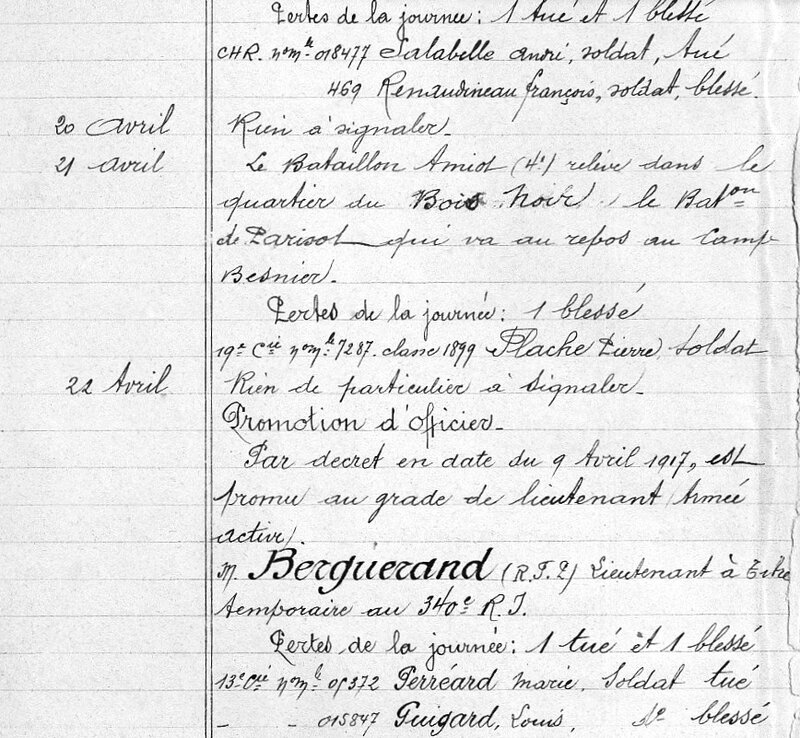 Pertes de la journée : 1 tué et 1 blessé
CHR. n° mle 018477 Salabelle André, soldat, tué
469 Renaudineau françois, soldat, blessé.
20 Avril Rien à signaler.
21 Avril Le Bataillon Amiot (4e) relève dans le
quartier du Bois Noir le Baton
de Parisot qui va au repos au Camp
Besnier.
Pertes de la journée : 1 blessé
19e Cie n° mle 7287. classe 1899 Plache Pierre, Soldat
22 Avril Rien de particulier à signaler.
Promotion d'officier.
Par decret en date du 9 Avril 1917, est
promu au grade de lieutenant (Armée
active).
M. Berguerand (R.T.2) Lieutenant à titre
temporaire au 340e R.I.
Pertes de la journée : 1 tué et 1 blessé
13e Cie n° mle 05372 Perréard Marie, Soldat tué
- - 015847 Guigard, Louis, de blessé